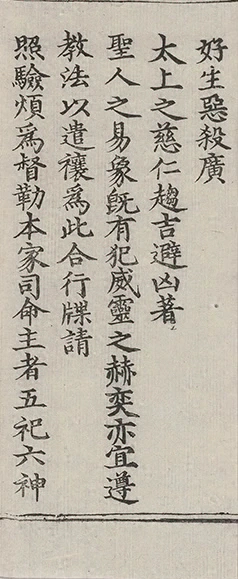 好生惡殺廣
太上之慈仁趨吉避凶著
聖人之易象旣有犯威靈之赫奕亦宜遵
教法以遣禳爲此合行牒請
照驗煩爲督勒本家司命主者五祀六神